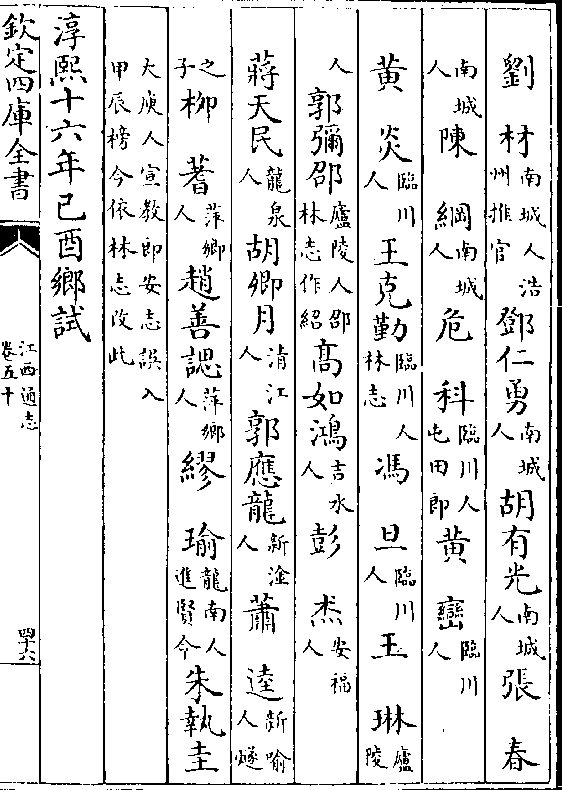 劉　材南城人浩州推官鄧仁勇南城人胡有光南城人張　春
南城人陳　綱南城人危　科臨川人屯田郎黄　巒臨川人
黄　炎臨川人王克勤臨川人林志馮　旦臨川人王　琳廬陵
人郭彌邵廬陵人邵林志作紹高如鴻吉水人彭　杰安福人
蔣天民龍泉人胡卿月清江人郭應龍新淦人蕭　逵新喻人燧
之子柳　蓍萍鄉人趙善諰萍鄉人繆　瑜龍南人進賢令朱執圭
大庾人宣教郎安志誤入甲辰榜今依林志改此
淳熙十六年己酉鄉試
欽定四庫全書
江西通志
卷五十
四六